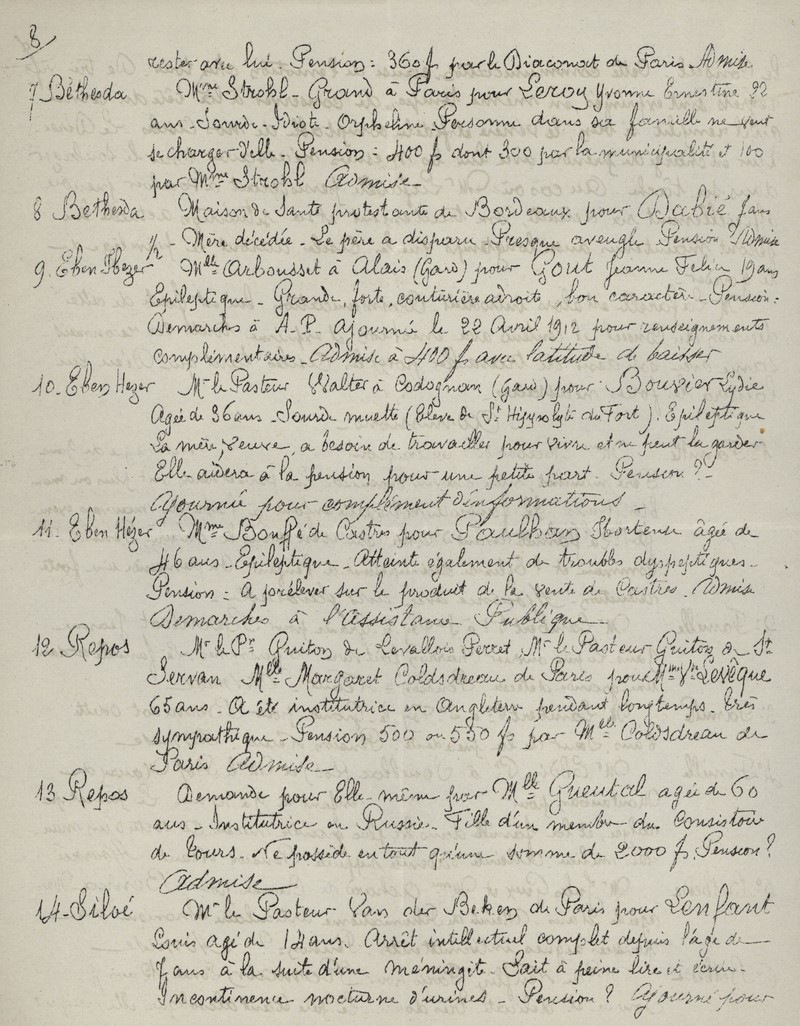 8/
rester avec lui. Pension: 360 f par le Diaconat de Paris. Admise
7 Béthesda Mme Strohl-Grand à Paris pour Leroy Yvonne Ernestine 22
ans. Sourde. Idiote. Orpheline. Personne dans sa famille ne veut
se charger d'elle. Pension: 400 f dont 300 par la municipalité et 100
par Mme Strohl Admise-
8 Bethesda Maison de Santé protestante de Bordeaux pour Dabié ans
1/2 - Mère décédée. Le père a disparu. Presque aveugle Pension? Admise
9. Eben Hezer Mlle Arbousset à Alais (Gard) pour Gout Jeanne Felicie 19 ans
Epileptique - Grande, forte, couturière adroite, bon caractère - Pension:
Demarches à A.P. ajourné le 22 Avril 1912 pour renseignements
complémentaires - Admise à 400 f avec latitude de baisser
10. Eben Hezer Mr le Pasteur Walter à Codognan (Gard) pour Bouvier Lydie
Agée de 36 ans. Sourde muette (Elève de St Hippolyte du Fort). Epileptique
La mère, veuve, a besoin de travailler pour vivre et ne peut la garder
Elle aidera à la pension pour une petite part. Pension?-
Ajournée pour complément d'informations -
11. Eben Hézer Mme Bouffé de Castres pour Paulhan Hortense âgée de
46 ans. Epileptique - Atteinte également de troubles dyspeptiques-
Pension: A prélever sur le produit de la vente de Castres. Admise
Demarches à l'Assistance Publique-
12 Repos Mr le Pr Guiton de Levallois Perret, Mr le Pasteur Guiton de St
Servan Melle Margaret Coldsdreau de Paris pour Mme Vve Levêque
65 ans. A été institutrice en Angleterre pendant longtemps. Très
sympathique - Pension 500 ou 550 f par Melle Coldsdreau de
Paris Admise-
13 Repos Demande pour Elle-même par Mlle Gueutal agée de 60
ans - Institutrice en Russie. Fille d'un membre du Consistoire
de Tours. Ne possède en tout qu'une somme de 2000 f. Pension?
Admise
14-Siloé Mr le Pasteur Van der Beken de Paris pour Lenfant
Louis agé de 14 ans. Arrêt intellectuel complet depuis l'âge de
7 ans à la suite d'une méningite. Sait à peine lire et écrire.
Incontinence nocturne d'urines - Pension? Ajourné pour